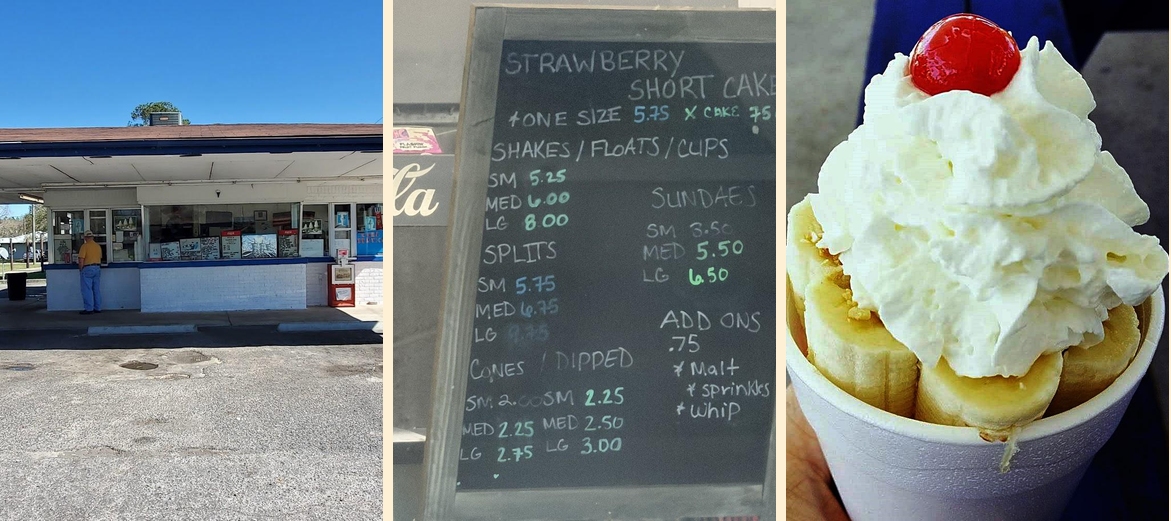 la
STRAWBERRY
SHORT CAKE
*ONE SIZE 5.75 X CAKE 75
SHAKES / FLOATS / CUPS
SM 5.25
MED 6.00
LG 8.00
SPLITS
SM 5.75
MED 6.75
LG
CONES / DIPPED
SM 2.00 SM 2.25
MED 2.25 MED 2.50
LG 2.75 LG 3.00
SUNDAES
SM 3.50
MED 5.50
LG 6.50
ADD ONS
.75
* Malt
* sprinkles
* whip